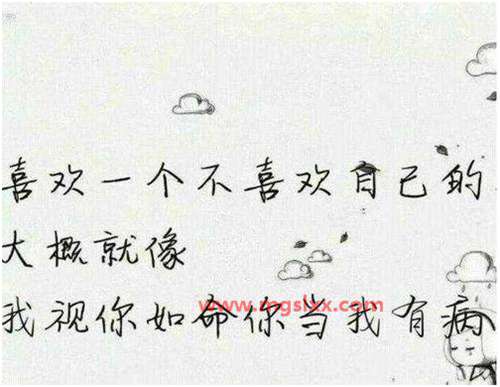 喜欢一个不喜欢自己的
大概就像
我视你如命你当我有病
www.mgslxx.com